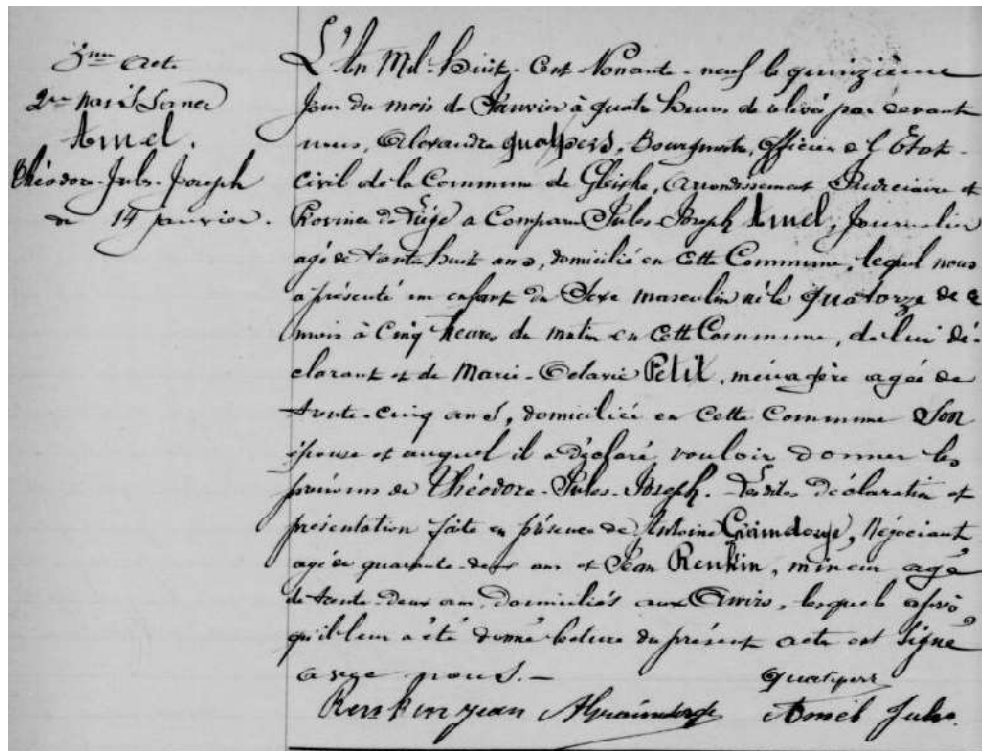 3me Acte
2me Naissance
Amel.
Théodore-Jules-Joseph
du 14 Janvier.
L'An Mil-huit-Cent Nonante-neuf le quinzième
Jour du mois de Janvier à quatre heures de relevée par devant
nous, Alexandre Bourgmestre, Officier de l'État-
Civil de la Commune de Gleixhe, Arrondissement Judiciaire et
Province de Liège a Comparu Jules Joseph Amel, Journalier
agé de trente huit ans, domicilié en Cette Commune, lequel nous
a présenté un enfant du Sexe masculin né le quatorze de ce
mois à Cinq heures du matin en Cette Commune, de lui dé-
clarant et de Marie-Octavie Petit, ménagère agée de
trente-cinq ans, domiciliée en Cette Commune Son
épouse et auquel il a déclaré vouloir donner les
prénoms de Théodore-Jules-Joseph. Lesdites déclaration et
présentation faite en présence de Antoine Graindorge, Négociant
agé de quarante-deux ans et Jean Renkin, mineur agé
de trente-deux ans, domiciliés aux Awirs, lesquels après
qu'il leur a été donné lecture du présent acte ont Signé
avec nous.-
Renkin Jean AGraindorge Amel Jules.